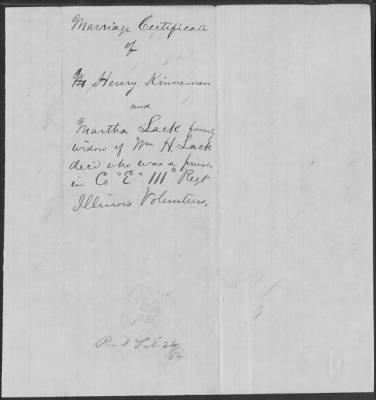 Marriage Certificate
of
Henry Kinneman
and
Martha Lack formerly
widow of Wm H. Lack
decd who was a private
in Co "E" 111" Regt
Illinois Volunteers,